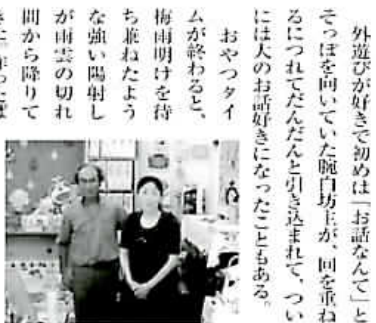 外遊びが好きで初めは「お話なんて」と
そっぽを向いていた腕白坊主が、回を重ね
るにつれてだんだんと引き込まれて、つい
には大のお話好きになったこともある。
おやつタイ
ムが終わると、
梅雨明けを待
ち兼ねたよう
な強い陽射し
が雨雲の切れ
間から降りて